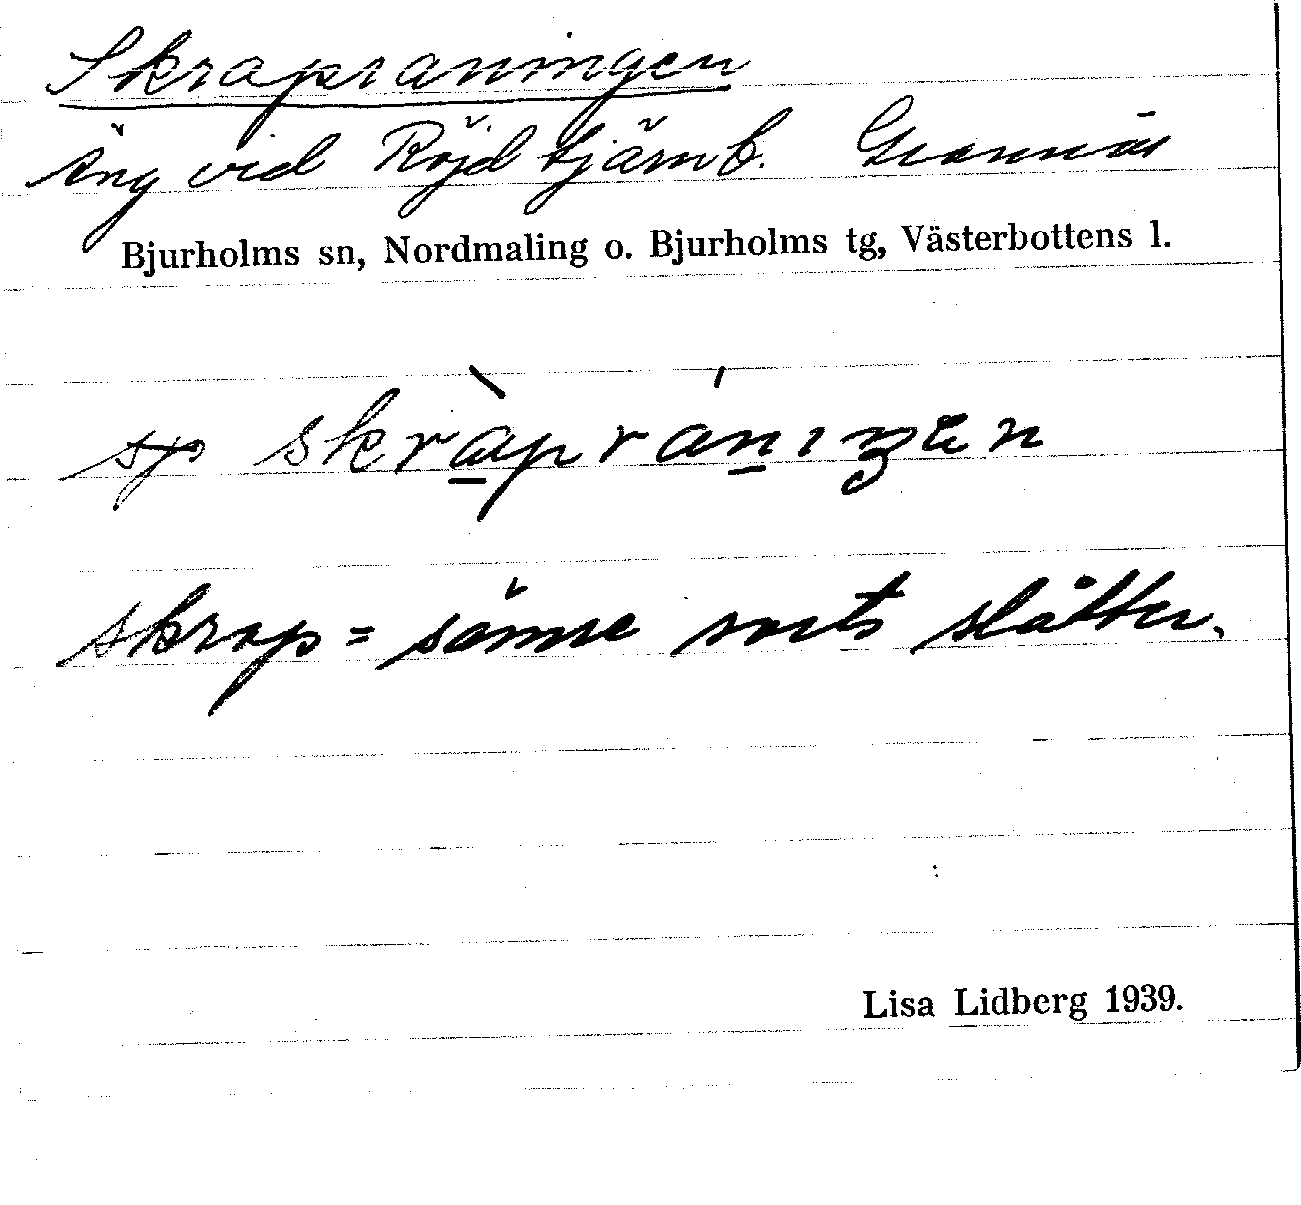 Skrapraningen
äng vid Röjdtjärnb. Grannäs
Bjurholms sn, Nordmaling o. Bjurholms tg, Västerbottens l.
skràpránıŋen
skrap = sämre sorts slåtter.
Lisa Lidberg 1939.